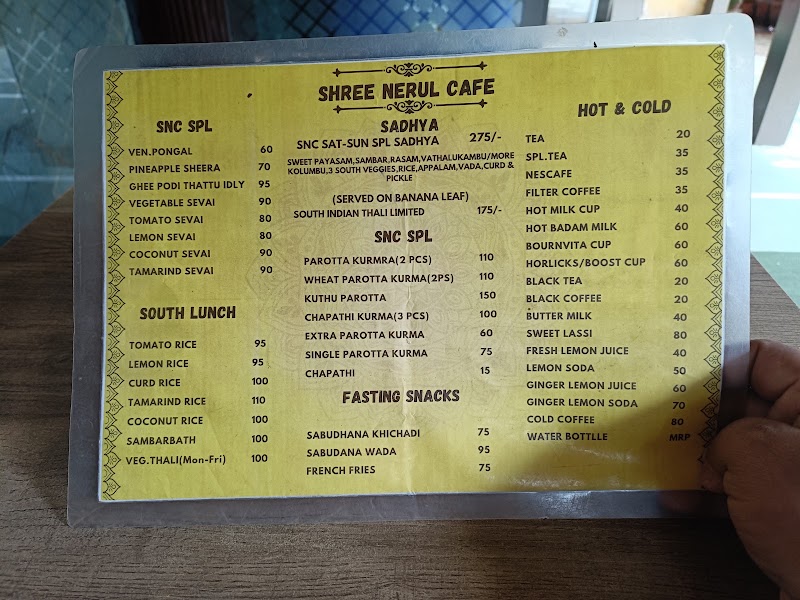 SHREE NERUL CAFE
SNC SPL
VEN.PONGAL 60
PINEAPPLE SHEERA 70
GHEE PODI THATTU IDLY 95
VEGETABLE SEVAI 90
TOMATO SEVAI 80
LEMON SEVAI 80
COCONUT SEVAI 90
TAMARIND SEVAI 90
SOUTH LUNCH
TOMATO RICE 95
LEMON RICE 95
CURD RICE 100
TAMARIND RICE 110
COCONUT RICE 100
SAMBARBATH 100
VEG.THALI(Mon-Fri) 100
SADHYA
SNC SAT-SUN SPL SADHYA 275/-
SWEET PAYASAM,SAMBAR,RASAM,VATHALUKAMBU/MORE
KOLUMBU,3 SOUTH VEGGIES,RICE,APPALAM,VADA,CURD &
PICKLE
(SERVED ON BANANA LEAF)
SOUTH INDIAN THALI LIMITED 175/-
SNC SPL
PAROTTA KURMRA(2 PCS) 110
WHEAT PAROTTA KURMA(2PS) 110
KUTHU PAROTTA 150
CHAPATHI KURMA(3 PCS) 100
EXTRA PAROTTA KURMA 60
SINGLE PAROTTA KURMA 75
CHAPATHI 15
FASTING SNACKS
SABUDHANA KHICHADI 75
SABUDANA WADA 95
FRENCH FRIES 75
HOT & COLD
TEA 20
SPL.TEA 35
NESCAFE 35
FILTER COFFEE 35
HOT MILK CUP 40
HOT BADAM MILK 60
BOURNVITA CUP 60
HORLICKS/BOOST CUP 60
BLACK TEA 20
BLACK COFFEE 20
BUTTER MILK 40
SWEET LASSI 80
FRESH LEMON JUICE 40
LEMON SODA 50
GINGER LEMON JUICE 60
GINGER LEMON SODA 70
COLD COFFEE 80
WATER BOTTLLE MRP